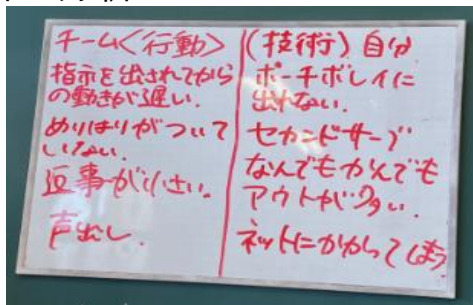 チーム<行動>
指示を出されてから
の動きが遅い.
めりはりがついて
いない.
返事が小さい.
声出し.
(技術) 自分
ポーチボレイに
出れない.
セカンドサーブ
なんでもかんでも
アウトが多い.
ネットにかかってしまう